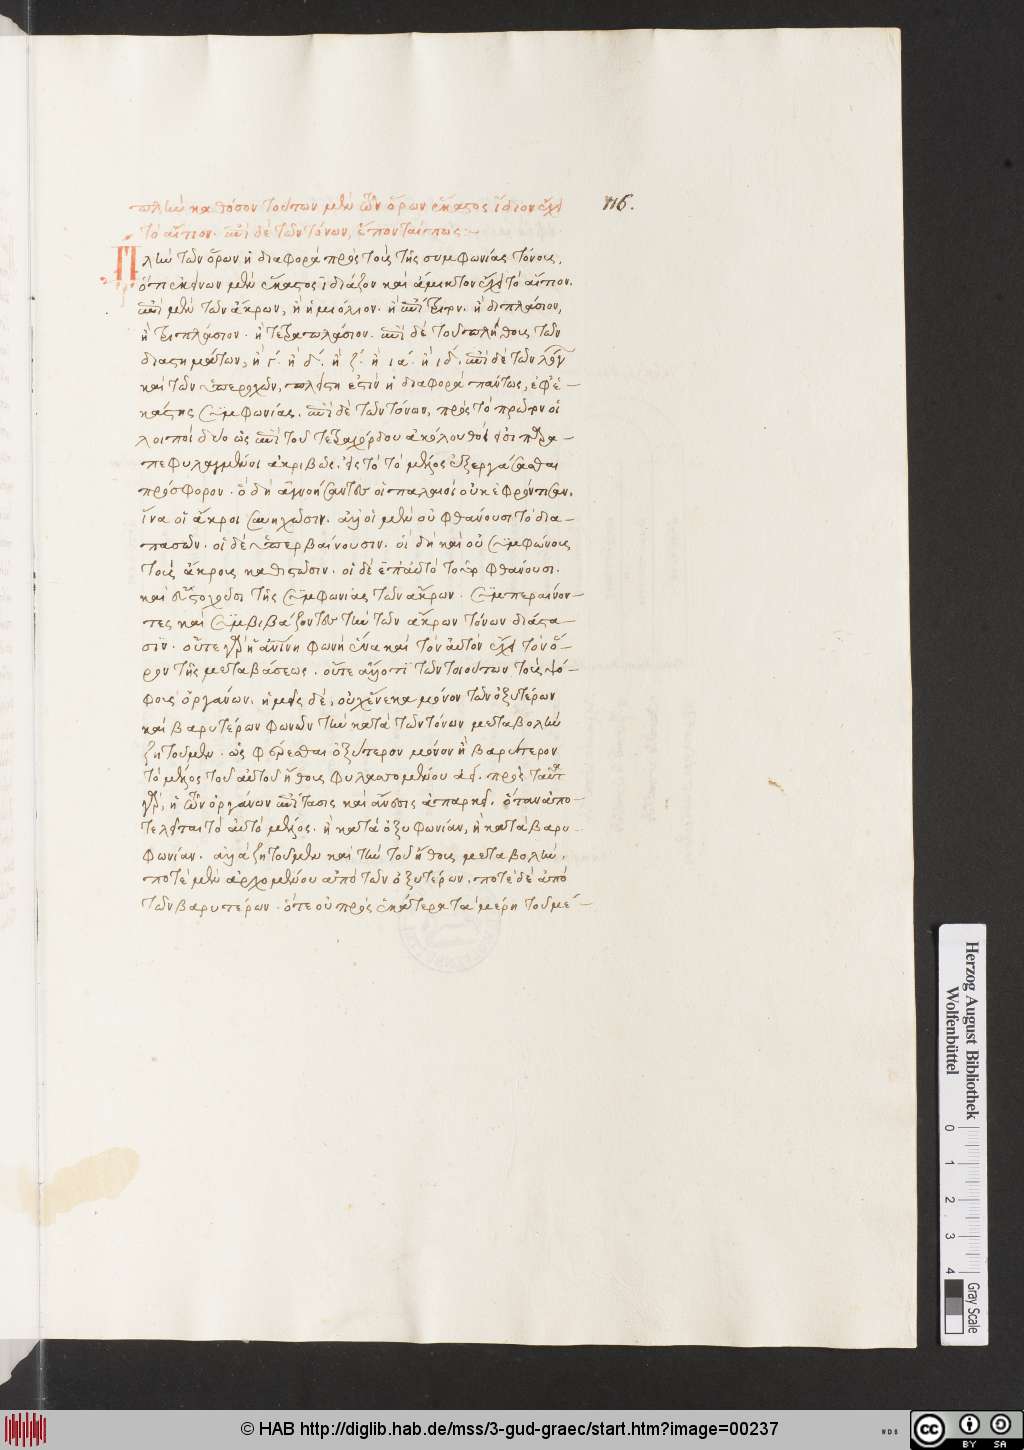 πλὴν καθόσον τούτων μὲν τῶν ὅρων ἕκαστος ἴδιον ἔχει 116.
τὸ αἴτιον· ἐπὶ δὲ τῶν τόνων, ἕπονται
Πλὴν τῶν ὅρων ἡ διαφορὰ πρὸς τοὺς τῆς συμφωνίας τόνους,
ὅτι ἐκείνων μὲν ἕκαστος ἰδιάζον καὶ ἄμικτον ἔχει τὸ αἴτιον.
ἐπὶ μὲν τῶν ἄκρων, ἢ ἡμιόλιον· ἢ ἐπίτριτον· ἢ διπλάσιον,
ἢ τριπλάσιον· ἢ τετραπλάσιον· ἐπὶ δὲ τοῦ πλήθους τῶν
διαστημάτων, ἢ ἢ δ΄· ἢ ζ΄· ἢ ια΄· ἢ ιδ΄, ἐπὶ δὲ τῶν λόγων
καὶ τῶν ὑπεροχῶν, πλείστη ἐστὶν ἡ διαφορὰ πάντως, ἐφ' ἑ-
κάστης συμφωνίας. ἐπὶ δὲ τῶν τόνων, πρὸς τὸ πρῶτον οἱ
λοιποὶ δύο ὡς ἐπὶ τοῦ τετραχόρδου ἀκόλουθοί
πεφυλαγμένοι ἀκριβῶς, εἰς τὸ τὸ μέλος ἐξεργάσασθαι
πρόσφορον· ὃ δὴ ἀγνοήσαντες οἱ παλαιοὶ οὐκ ἐφρόντισαν,
ἵνα οἱ ἄκροι συνηχῶσιν. ἀλλ' οἱ μὲν οὐ φθάνουσι τὸ δια-
πασῶν· οἱ δὲ ὑπερβαίνουσιν· οἱ δὴ καὶ οὐ συμφώνους
τοὺς ἄκρους καθιστῶσιν· οἱ δὲ ἐπ' αὐτὸ τοῦτο φθάνουσι.
καὶ στοχοῦσι τῆς συμφωνίας τῶν ἄκρων· συμπεραίνον-
τες καὶ συμβιβάζοντες τὴν τῶν ἄκρων τόνων διάστα-
σιν· οὔτε γὰρ ἡ φωνὴ ἕνα καὶ τὸν αὐτὸν ἔχει τὸν ὅ-
ρον τῆς μεταβάσεως. οὔτε τῶν τοιούτων τοῖς ψό-
φοις ὀργάνων. ἡμεῖς δέ, οὐχ ἕνεκα μόνον τῶν ὀξυτέρων
καὶ βαρυτέρων φωνῶν τὴν κατὰ τῶν τόνων μεταβολὴν
ζητοῦμεν· ὡς φέρεσθαι ὀξύτερον μόνον ἢ βαρύτερον
τὸ μέλος τοῦ αὐτοῦ ἤθους φυλαττομένου ἀεί. πρὸς ταύτην
γὰρ, ἡ τῶν ὀργάνων ἐπίτασις καὶ ἄνεσις ἀπαρκεῖ, ὅταν ἀπο-
τελεῖται τὸ αὐτὸ μέλος· ἢ κατὰ ὀξυφωνίαν, ἢ κατὰ βαρυ-
φωνίαν. ἀλλὰ ζητοῦμεν καὶ τὴν τοῦ ἤθους μεταβολὴν·
ποτὲ μὲν ἀρχομένου ἀπὸ τῶν ὀξυτέρων, ποτὲ δὲ ἀπὸ
τῶν βαρυτέρων· ὅτε οὐ πρὸς ἑκάτερα τὰ μέρη τοῦ μέ-
Herzog August Bibliothek
Wolfenbüttel
0 1 2 3 4
Gray Scale
© HAB http://diglib.hab.de/mss/3-gud-graec/start.htm?image=00237
WDB
cc BY SA